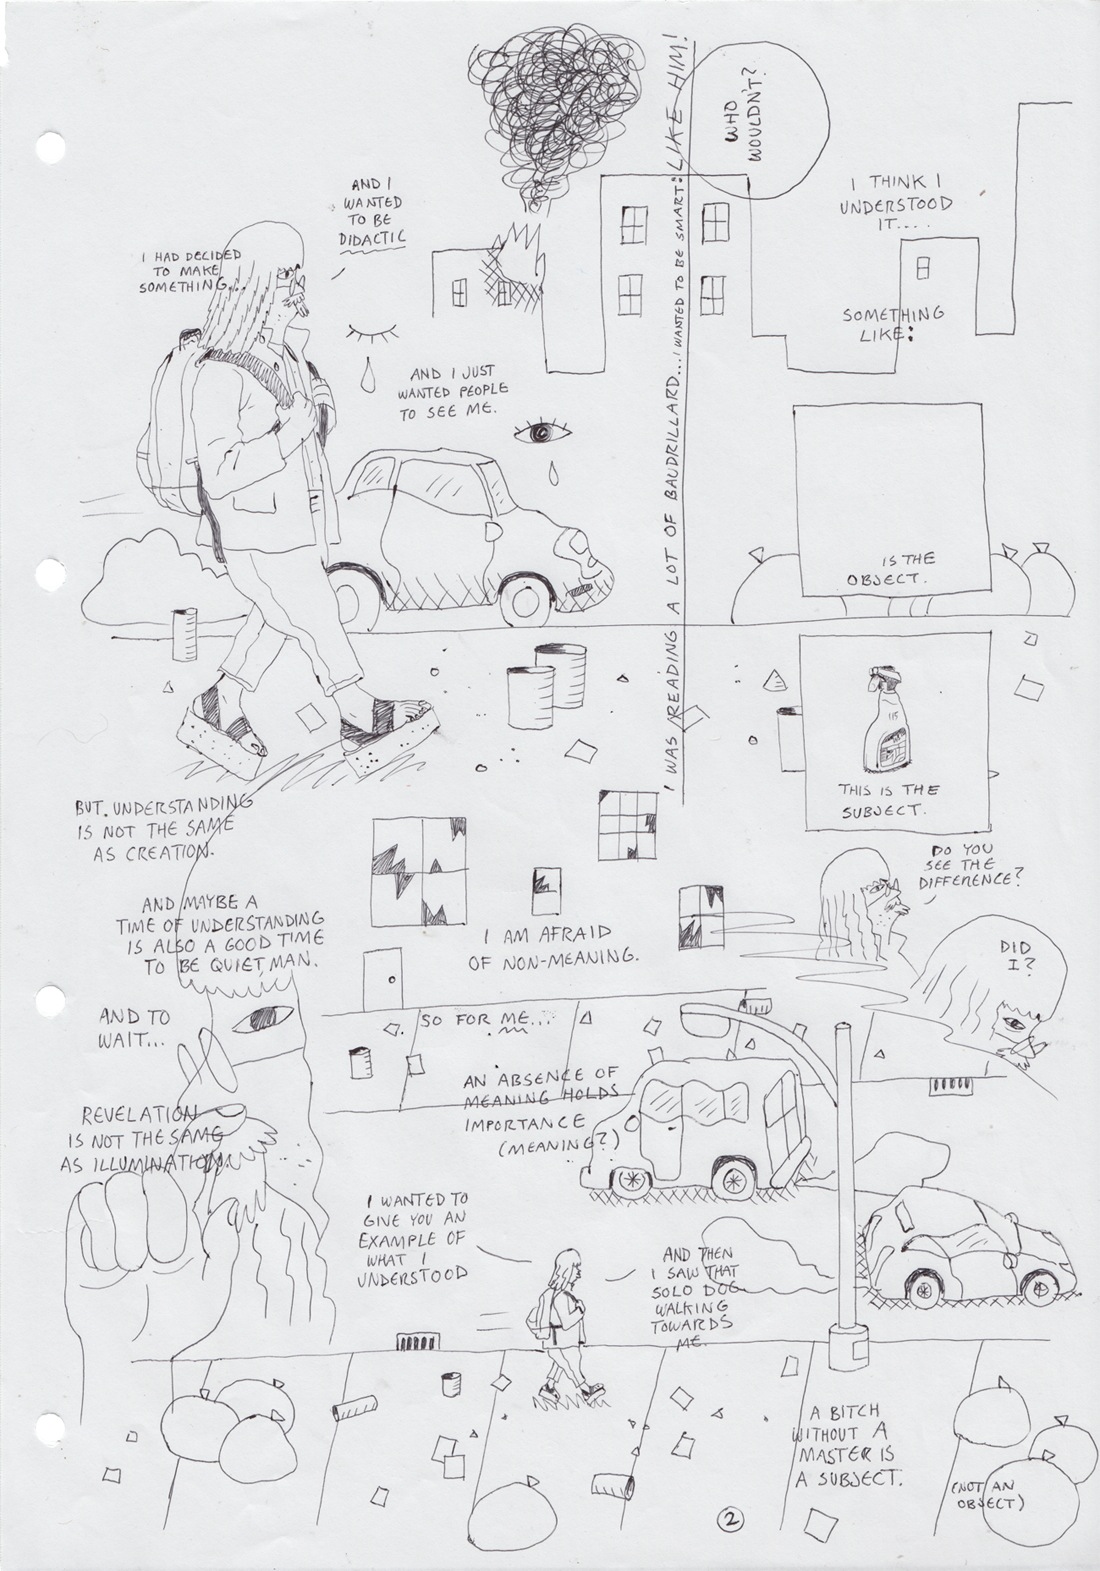 I HAD DECIDED
TO MAKE
SOMETHING...
AND I
WANTED
TO BE
DIDACTIC
AND I JUST
WANTED PEOPLE
TO SEE ME.
I WAS READING A LOT OF BAUDRILLARD... I WANTED TO BE SMART: LIKE HIM!
WHO
WOULDN'T?
I THINK I
UNDERSTOOD
IT....
SOMETHING
LIKE:
IS THE
OBJECT.
THIS IS THE
SUBJECT.
DO YOU
SEE THE
DIFFERENCE?
DID
I?
BUT. UNDERSTANDING
IS NOT THE SAME
AS CREATION.
AND MAYBE A
TIME OF UNDERSTANDING
IS ALSO A GOOD TIME
TO BE QUIET, MAN.
AND TO
WAIT...
REVELATION
IS NOT THE SAME
AS ILLUMINATION
I AM AFRAID
OF NON-MEANING.
SO FOR ME...
AN ABSENCE OF
MEANING HOLDS
IMPORTANCE
(MEANING?)
I WANTED TO
GIVE YOU AN
EXAMPLE OF
WHAT I
UNDERSTOOD
AND THEN
I SAW THAT
SOLO DOG
WALKING
TOWARDS
ME.
A BITCH
WITHOUT A
MASTER IS
A SUBJECT.
(NOT AN
OBJECT)
2